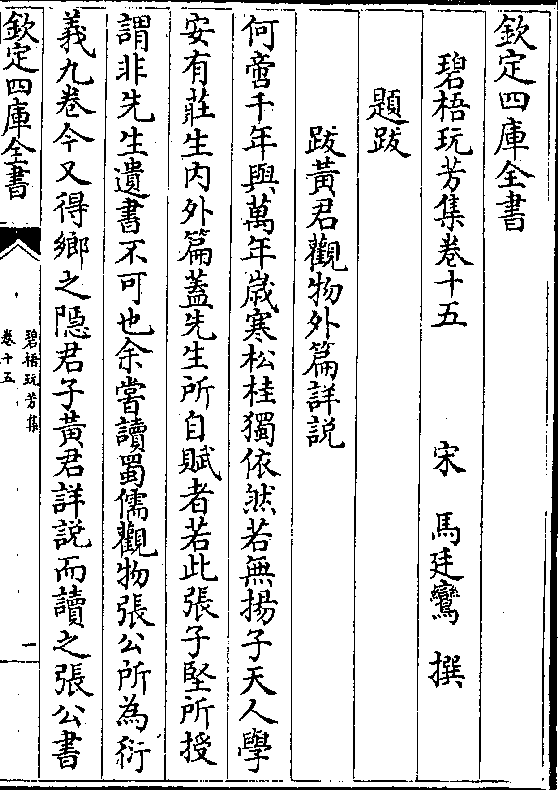 欽定四庫全書
碧梧玩芳集卷十五
宋 馬廷鸞 撰
題跋
跋黃君觀物外篇詳説
何啻千年與萬年歲寒松桂獨依然若無揚子天人學
安有莊生内外篇蓋先生所自賦者若此張子堅所授
謂非先生遺書不可也余嘗讀蜀儒觀物張公所為衍
義九卷今又得鄉之隠君子黃君詳説而讀之張公書
欽定四庫全書
碧梧玩芳集
卷十五
一